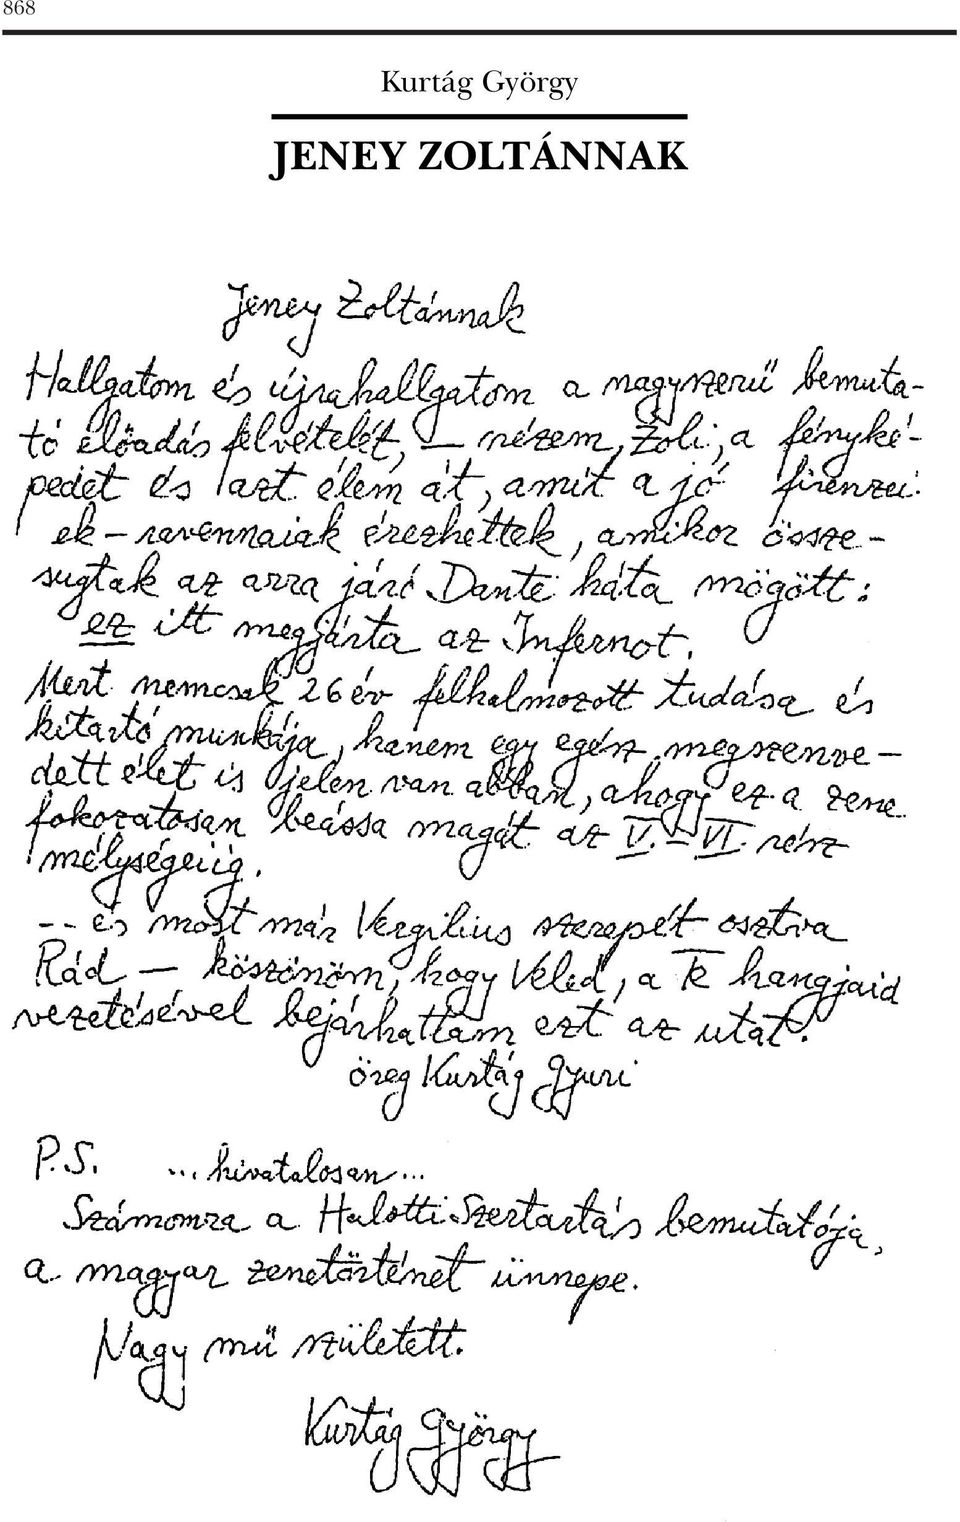 868
Kurtág György
JENEY ZOLTÁNNAK
Jeney Zoltánnak
Hallgatom és újrahallgatom a nagyszerű bemuta-
tó előadás felvételét, — nézem, Zoli, a fényké-
pedet és azt élem át, amit a jó firenzei-
ek – ravennaiak érezhettek, amikor össze-
sugtak az arra járó Dante háta mögött:
ez itt megjárta az Infernot.
Mert nemcsak 26 év felhalmozott tudása és
kitartó munkája, hanem egy egész megszenve-
dett élet is jelen van abban, ahogy ez a zene
fokozatosan beássa magát az V. – VI. rész
mélységeiig.
-- és most már Vergilius szerepét osztva
Rád — köszönöm, hogy Veled, a Te hangjaid
vezetésével bejárhattam ezt az utat.
öreg Kurtág Gyuri
P.S. ... hivatalosan ...
Számomra a Halotti Szertartás bemutatója,
a magyar zenetörténet ünnepe.
Nagy mű született.
Kurtág György